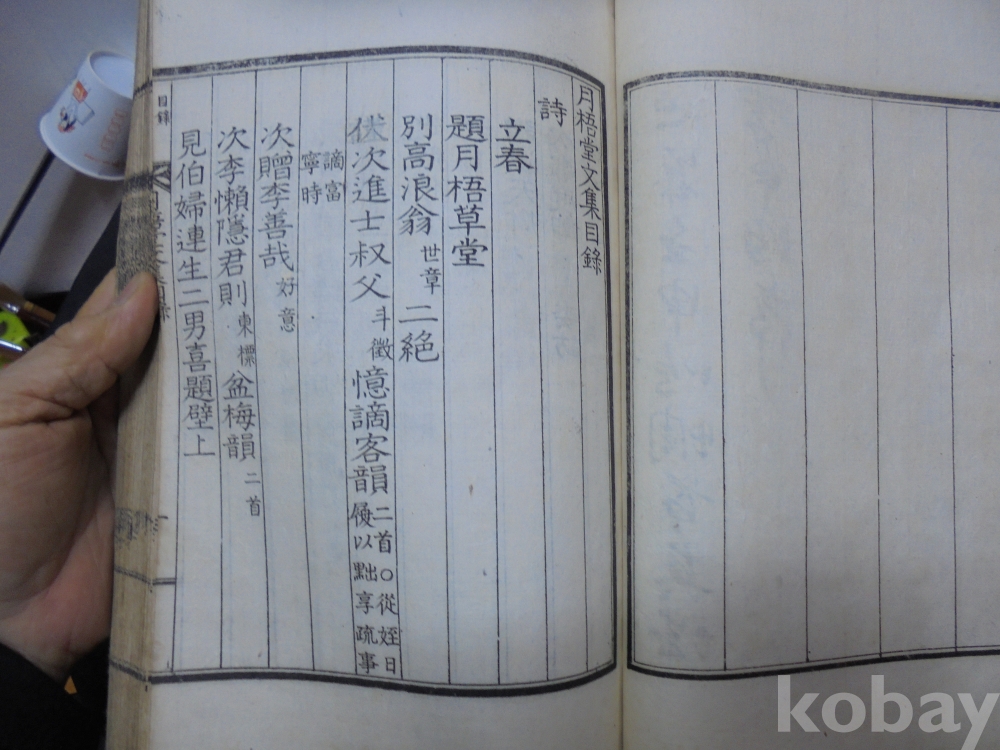 月梧堂文集目錄
詩
立春
題月梧草堂
別高浪翁世章二絕
伏次進士叔父斗徵憶謫客韻二首○從姪日
履以黜享疏事
謫富
寧時
次贈李善哉好意
次李懶隱君則東標盆梅韻二首
見伯婦連生二男喜題壁上
目錄
kobay